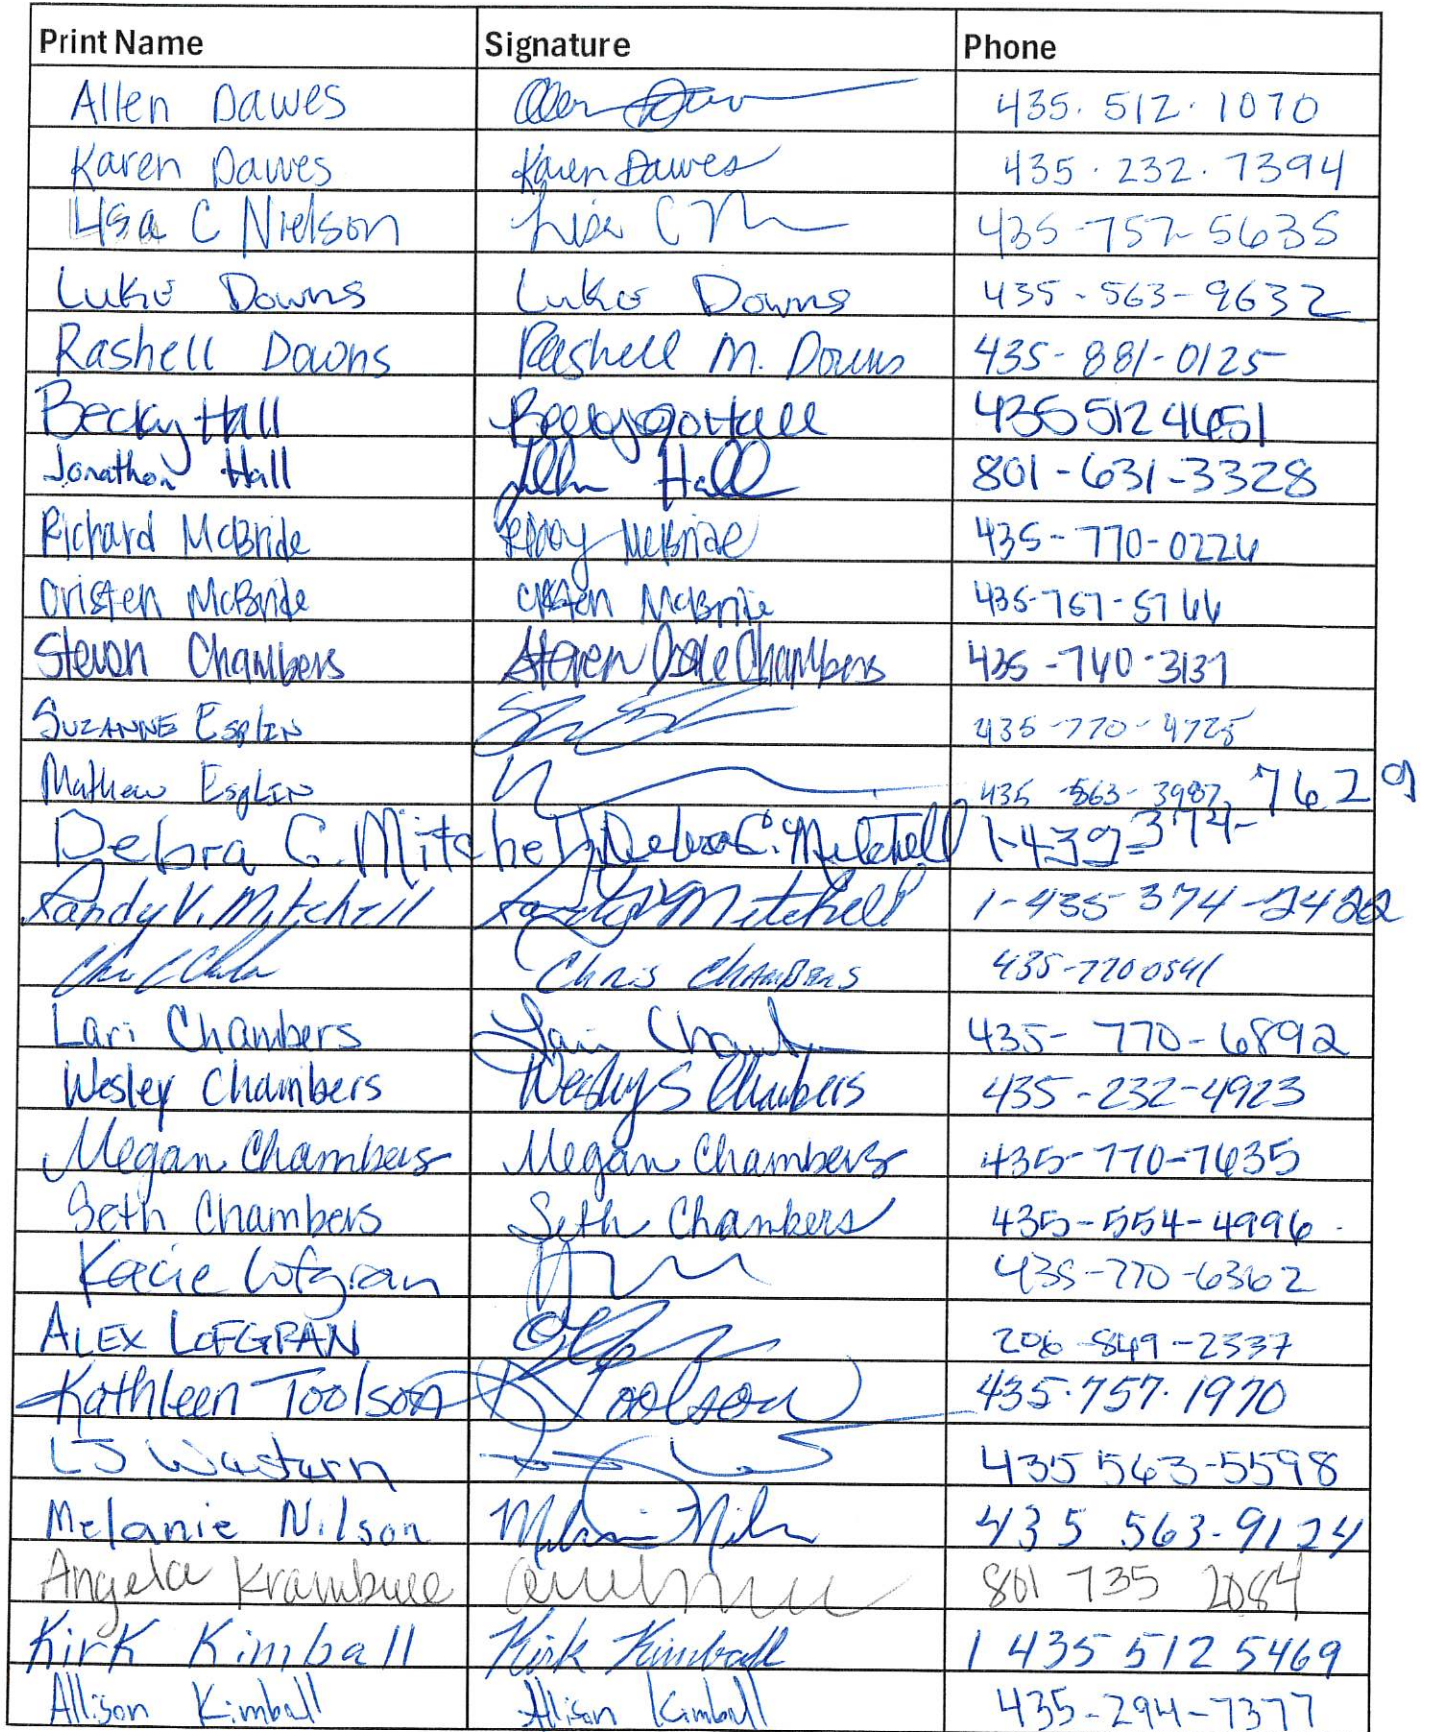 Print Name Signature Phone
Allen Dawes Allen Dawes 435.512.1070
Karen Dawes Karen Dawes 435.232.7394
Lisa C Nielson Lisa C N 435-757-5635
Luke Downs Luke Downs 435-563-9632
Rashell Downs Rashell M. Downs 435-881-0125
Becky Hall Becky Jo Hall 435 512 4651
Jonathon Hall Hall 801-631-3328
Richard McBride McBride 435-770-0226
Cristen McBride Cristen McBride 435-757-5766
Steven Chambers Steven Dale Chambers 435-740-3137
Suzanne Esplin 435-770-4725
Mathew Esplin 435-563-3987
Debra C. Mitchell Debra C. Mitchell 1-435-374-7629
Randy V. Mitchell Randy V Mitchell 1-435-374-2422
Chris Chambers 435-770 0541
Lari Chambers Lari 435-770-6892
Wesley Chambers Wesley S Chambers 435-232-4923
Megan Chambers Megan Chambers 435-770-7635
Seth Chambers Seth Chambers 435-554-4996
Kacie Lofgran 435-770-6362
ALEX LOFGRAN 206-849-2337
Kathleen Toolson K Toolson 435.757.1970
LJ Western 435 563-5598
Melanie Nilson Melanie Nilson 435 563-9124
Angela Krambule 801 735 2084
Kirk Kimball Kirk Kimball 1 435 512 5469
Allison Kimball Allison Kimball 435-294-7377